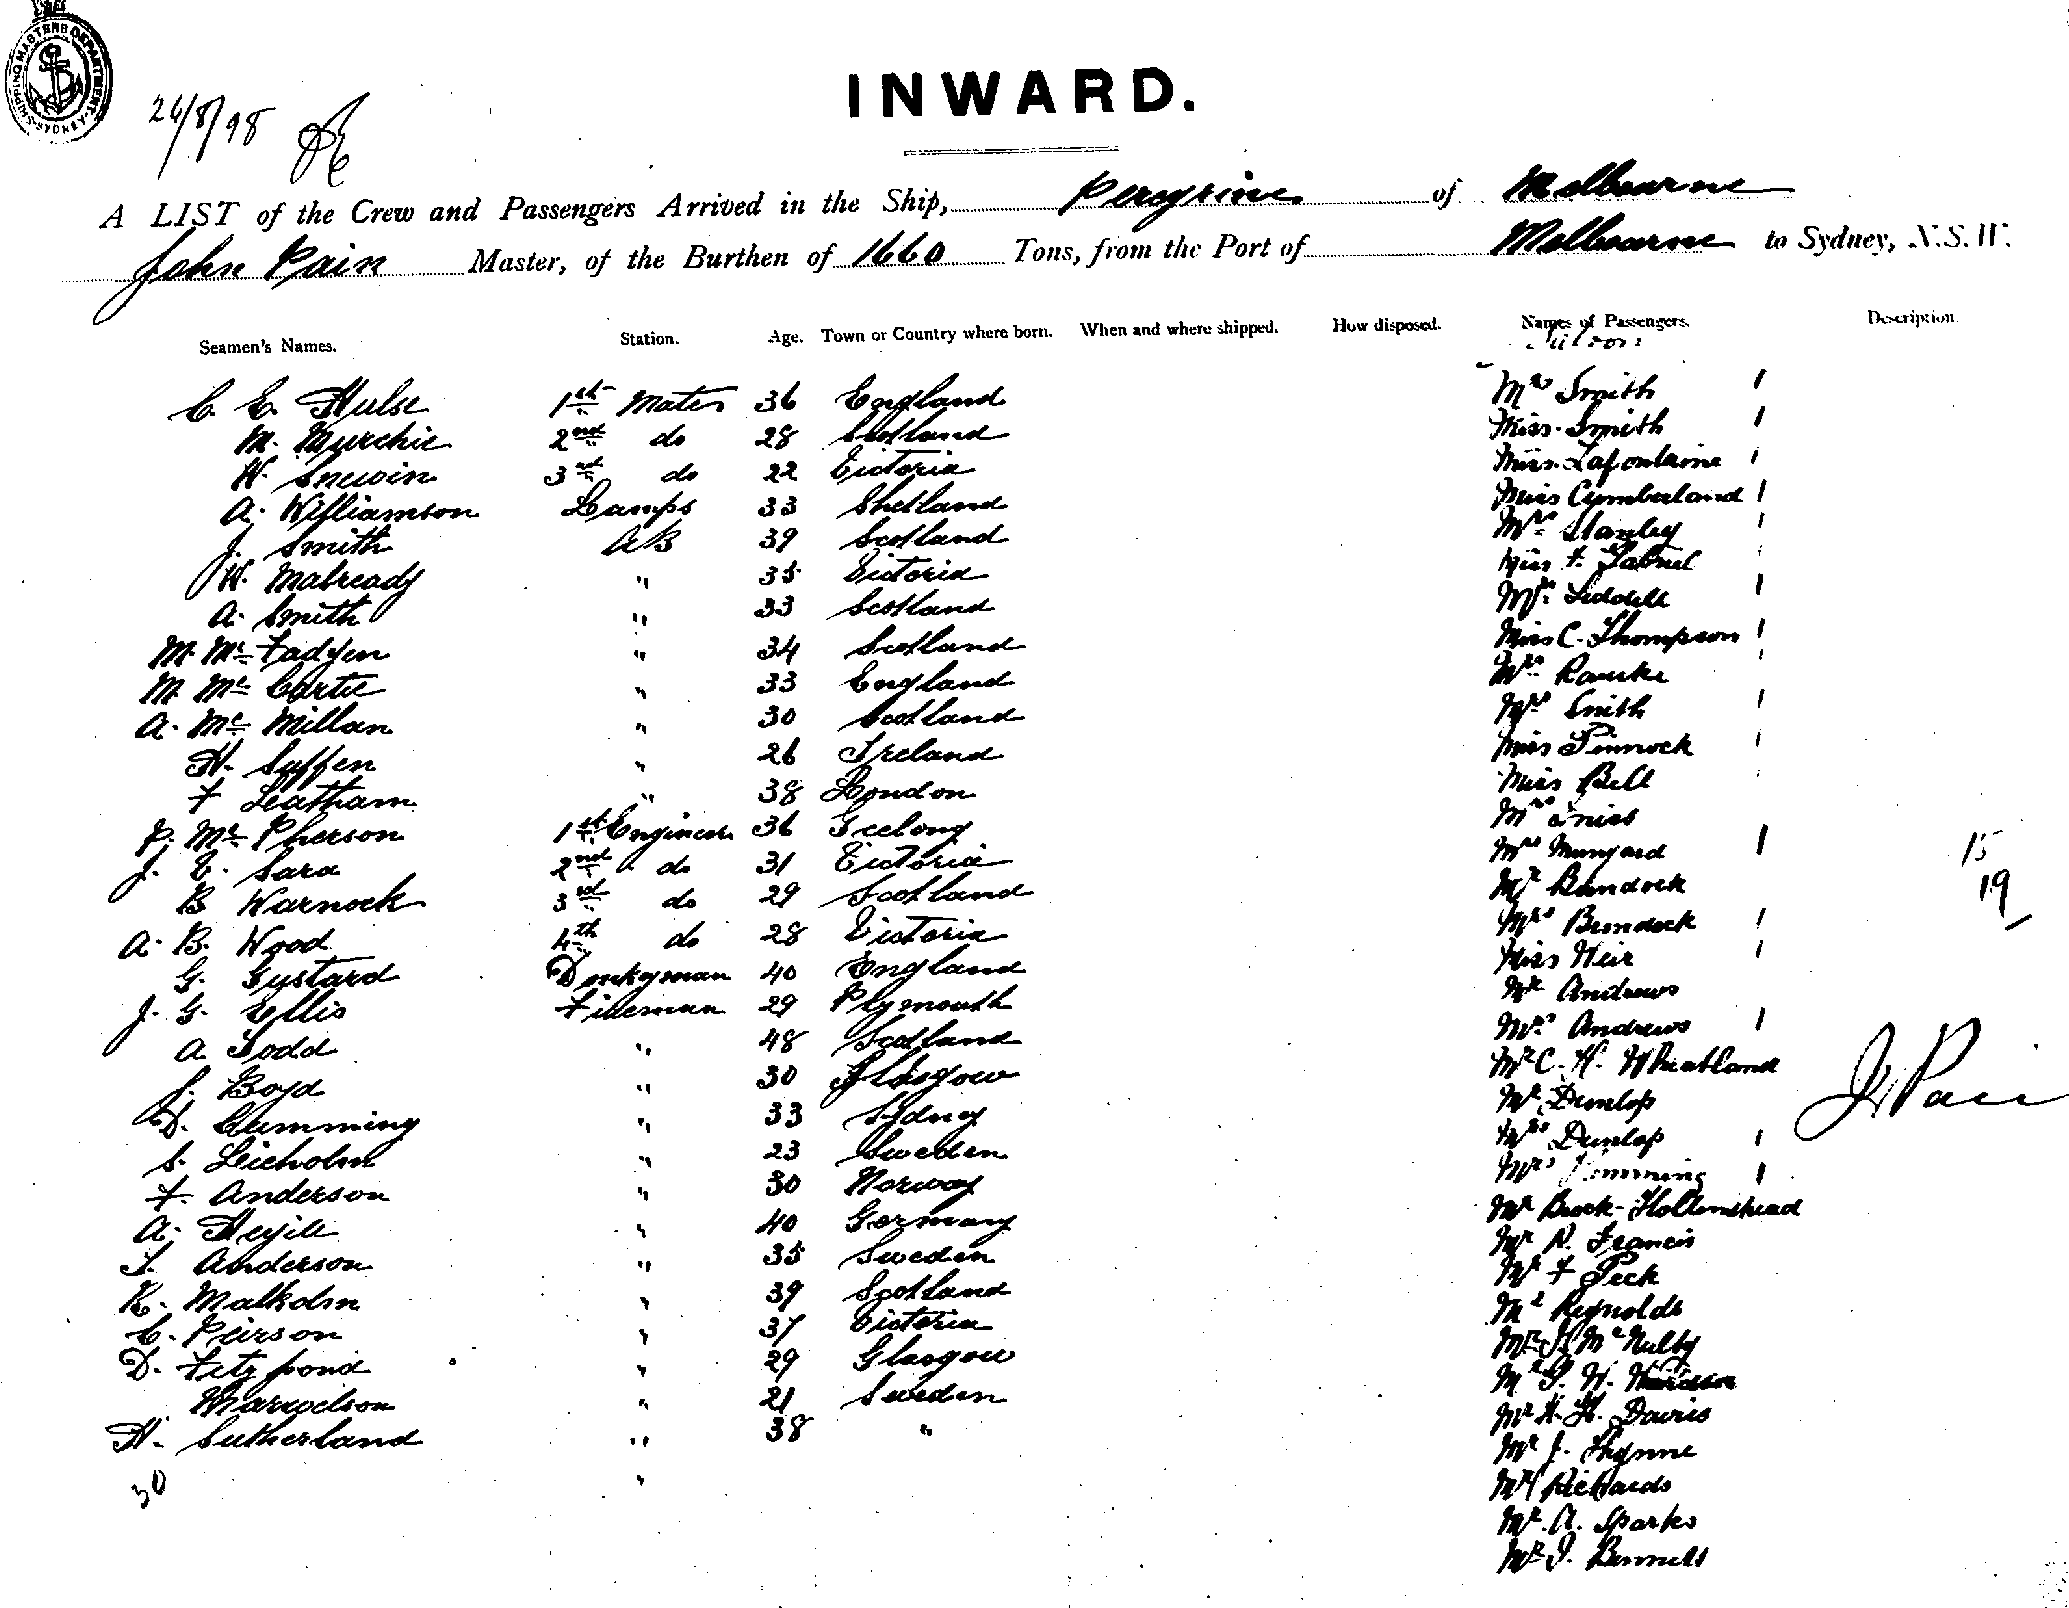 SHIPPING MASTERS DEPARTMENT
26/8/98
INWARD.
A LIST of the Crew and Passengers Arrived in the Ship, Peregrine of Melbourne
John Pain Master, of the Burthen of 1660 Tons, from the Port of Melbourne to Sydney, N.S.W.
Seamen's Names. Station. Age. Town or Country where born. When and where shipped. How disposed. Names of Passengers. Description
Saloon
C. E. Hulse 1st Mate 36 England Mrs Smith 1
M. Murchie 2nd do 28 Scotland Miss Smith 1
W. Snewin 3rd do 22 Victoria Miss Lafontaine 1
A. Williamson Lamps 33 Shetland Miss Cumberland 1
J. Smith AB 39 Scotland Mrs Stanley 1
W. Malready " 35 Victoria Miss F. Gabriel 1
A. Smith " 33 Scotland Mrs Liddell 1
M. McFadyen " 34 Scotland Miss C. Thompson 1
M McCartie " 33 England Mrs Rourke 1
A. McMillan " 30 Scotland Mrs Smith 1
H. Saffen " 26 Ireland Miss Pinnock 1
F Leatham " 38 London Miss Bell 1
P. McPherson 1st Engineer 36 Geelong Mrs
J. E. Sara 2nd do 31 Victoria Mrs Mungard 1
B Warnock 3rd do 29 Scotland Mr Bundock 15
A. B. Wood 4th do 28 Victoria Mrs Bundock 1 19
G. Gustard Donkeyman 40 England Miss Weir 1
J. G. Ellis Fireman 29 Plymouth Mr Andrews
A Todd " 48 Scotland Mrs Andrews 1
J. Boyd " 30 Glasgow Mr C. H. Wheatland
D. Cumming " 33 Sydney Mr Dunlop J Pain
S. Leicholm " 23 Sweden Mrs Dunlop 1
F. Anderson " 30 Norway Mrs 1
A. Heyile " 40 Germany Mr Brock-Hollinshead
J. Anderson " 35 Sweden Mr R. Francis
K. Malkolm " 39 Scotland Mr F Peck
C. Peirson " 37 Victoria Mr Reynolds
D. Fitzpond " 29 Glasgow Mr J McNulty
Marwelson " 21 Sweden Mr G. W.
H. Sutherland " 38 " Mr H. H. Davies
" Mr J. Thynne
30 Mr Richards
Mr A. Sparks
Mr J. Bennett